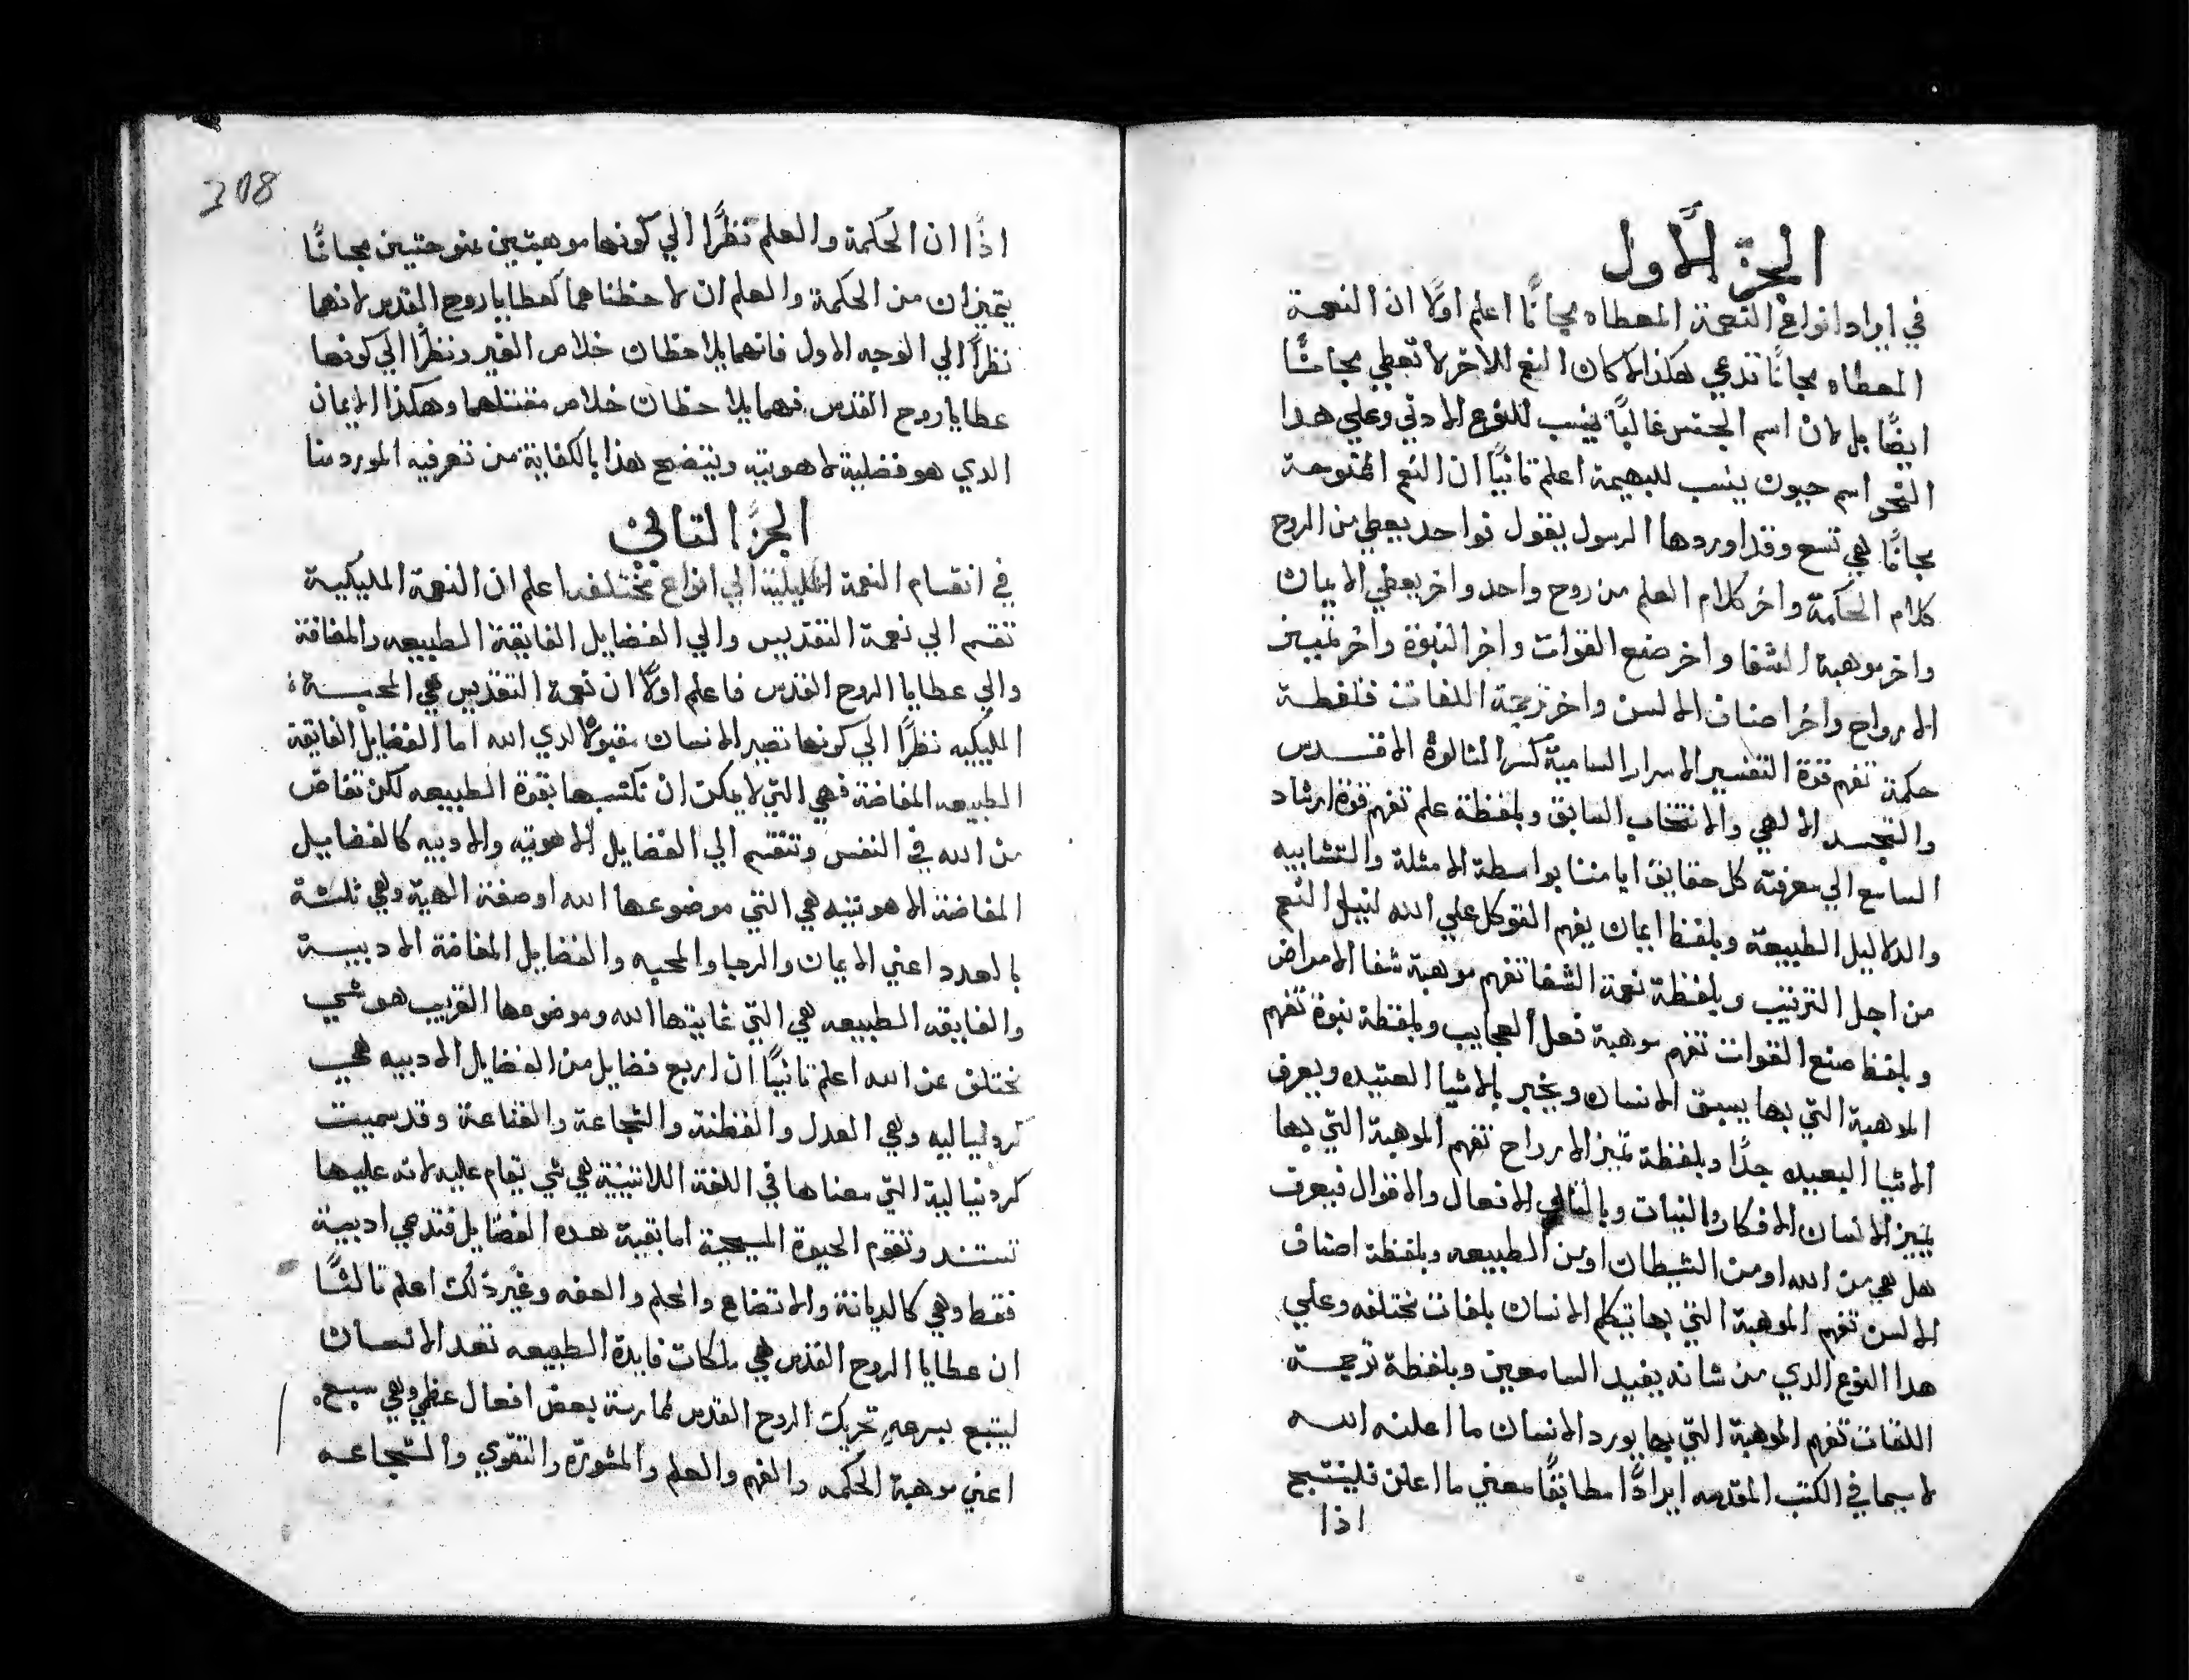 الجزّ الاَّول
في ايراد انواع النعمة المعطاه مجانًا اعلم اولًا ان النعمة
المعطاه مجانًا تدعي هكذا لا كان النعم الاخر لا تعطي مجانًا
ايضًا بل لان اسم الجنس غالبًا ينسب للنوع الادني وعلي هدا
النحو اسم حيون ينسب للبهيمة اعلم تانيًا ان النعم الممنوحة
مجانًا هي تسع وقد اوردها الرسول بقول فواحد يعطي من الروح
كلام الحكمة واخر كلام العلم من روح واحد واخر يعطي الايمان
واخر موهبة الشفا واخر صنع القوات واخر النبوة واخر تمييز
الارواح واخر اصناف الالسن واخر ترجمة اللغات فلفظة
حكمة تفهم قوة التفسير الاسرار السامية كسر الثالوث الاقدس
والتجسد الالهي والانتخاب السابق وبلفظة علم تفهم قوة ارشاد
السامع الي معرفته كل حقايق ايماننا بواسطة الامثلة والتشابيه
والدلاليل الطبيعة وبلفظ ايمان يفهم التوكل علي الله لنيل النعم
من اجل الترتيب وبلفظة نعمة الشفا تفهم موهبة شفا الامراض
وبلفظ صنع القوات تفهم موهبة فعل العجايب وبلفظة نبوة تفهم
الموهبة التي بها يسبق الانسان ويخبر بالاشيا العتيده ويعرف
الاشيا البعيده جدًّا وبلفظة تميز الارواح تفهم الموهبة التي بها
يميز الانسان الافكار والنيات وبالتالي الافعال والاقوال فيعرف
هل هي من الله او من الشيطان او من الطبيعه وبلفظة اصناف
الالسن تفهم الموهبة التي بها يتكلم الانسان بلغات مختلفه وعلي
هدا النوع الدي من شانه يفيد السامعين وبلفظة ترجمة
اللغات تفهم الموهبة التي بها يورد الانسان ما اعلنه الله
لا سيما في الكتب المقدسه ايرادًا مطابقًا معني ما اعلن فلينتبج
اذا
308
اذًا ان الحكمة والعلم نظرًا الي كونهما موهبتين ممنوحتين مجانًا
يتميزان من الحكمة والعلم ان لاحظناهما كعطايا روح القدس لانهما
نظرًا الي الوجه الاول فانهما يلاحظان خلاص الغير ونظرًا الي كونهما
عطايا روح القدس فهما يلاحظان خلاص مقتنيهما وهكذا الايمان
الدي هو فضلية لاهوتيه ويتضح هذا بالكفاية من تعرفيه المورد منا
الجزّ التانيّ
في انقسام النعمة المليلية الي انواع مختلفه اعلم ان النعمة المليكية
تقسم الي نعمة التقديس والي الفضايل الفايقة الطبيعه والمفاضة
والي عطايا الروح القدس فاعلم اولًا ان نعمة التقديس هي المحبة
المليكيه نظرًا الي كونها تصير الانسان مقبولًا لدي الله اما الفضايل الفايقة
الطبيعه المفاضة فهي التي لا يمكن ان نكتسبها بقوة الطبيعه لكن تفاض
من الله في النفس وتنقسم الي الفضايل الاهوتيه والادبيه كالفضايل
المفاضة الاهوتيه هي التي موضوعها الله او صفة الهية وهي ثلثة
بالعدد اعني الايمان والرجا والمحبه والفضايل المفاضة الادبيه
والفايقه الطبيعه هي التي غايتها الله وموضوعها القريب هو شي
مختلف عن الله اعلم تانيًا ان اربع فضايل من الفضايل الادبيه هي
كرديناليه وهي العدل والفطنة والشجاعة والقناعة وقد سميت
كردينالية التي معناها في اللغة اللاتنيية هي شي يقام عليه لانه عليها
تستند وتقوم الحيوة المسيحية اما بقية هده الفضايل فتدعي ادبية
فقط وهي كالديانة والاتضاع والحلم والعفه وغير ذلك اعلم تالثًا
ان عطايا الروح القدس هي ملكات فايدة الطبيعه تعد الانسان
ليتبع بسرعةٍ تحريك الروح القدس لممارسة بعض افعال عظمي وهي سبع
اعني موهبة الحكمه والفهم والعلم والمشوره والتقوي والشجاعه